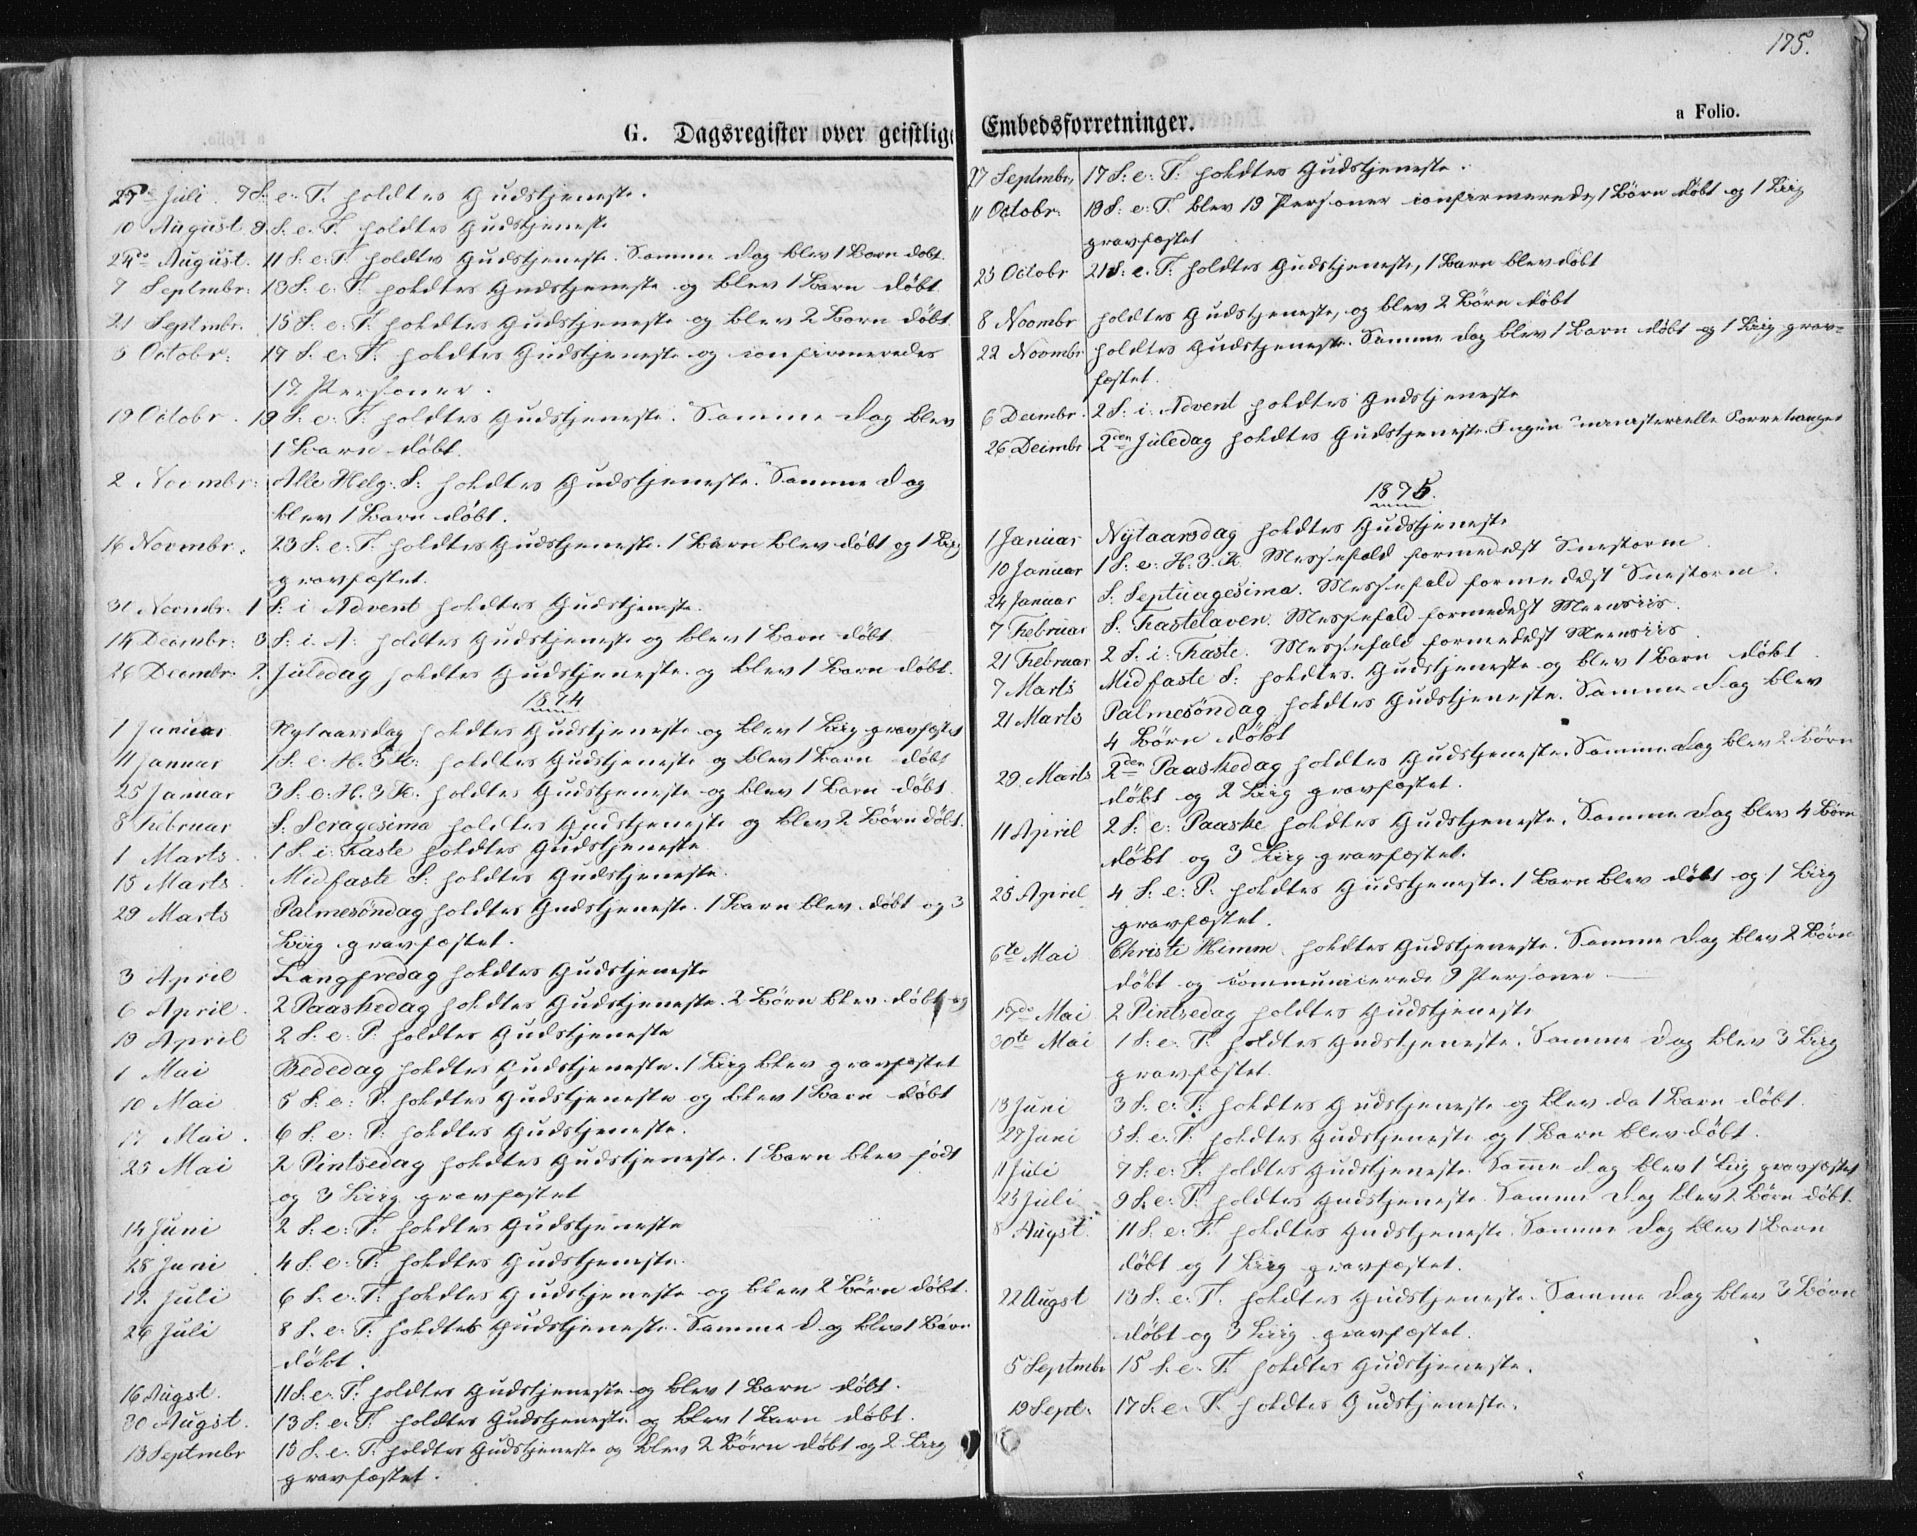 175.
G. Dagsregister over geistlige
27de Juli. 7 S. e. T. holdtes Gudstjeneste.
10 August 9 S. e. T. holdtes Gudstjeneste
24de August. 11 S. e. T. holdtes Gudstjeneste. Samme Dag blev 1 Barn døbt.
7 Septmbr: 13 S. e. T. holdtes Gudstjeneste og blev 1 Barn døbt.
21 Septmbr. 15 S. e. T. holdtes Gudstjeneste og blev 2 Børn døbt.
5 Octobr: 17 S. e. T. holdtes Gudstjeneste og confirmeredes
17 Personer.
19 Octobr. 19 S. e. T. holdtes Gudstjeneste. Samme Dag blev
1 Barn døbt.
2 Novmbr: Alle Helg. S: holdtes Gudstjeneste. Samme Dag
blev 1 Barn døbt.
16 Novmbr. 23 S. e. T. holdtes Gudstjeneste. 1 Barn blev døbt og 1 Liig
gravfæstet.
30 Novmbr. 1 S. i Advent holdtes Gudstjeneste.
14 Decmbr: 3 S. i. A: holdtes Gudstjeneste og blev 1 Barn døbt
26 Decmbr. 2. Juledag holdtes Gudstjeneste og blev 1 Barn døbt.
1874
1 Januar Nytaarsdag holdtes Gudstjeneste og blev 1 Liig gravfæstet
11 Januar 1 S. e. H. 3 K: holdtes Gudstjeneste og blev 1 Barn døbt
25 Januar 3 S. e. H. 3 K. holdtes Gudstjeneste og blev 1 Barn døbt.
8 Februar S. Sexagesima holdtes Gudstjeneste og blev 2 Børn døbt.
1 Marts. 1 S. i. Faste holdtes Gudstjeneste
15 Marts. Midfaste S: holdtes Gudstjeneste.
29 Marts Palmesöndag holdtes Gudstjeneste. 1 Barn blev døbt og 3
Liig gravfæstet.
3 April Langfredag holdtes Gudstjeneste
6 April. 2 Paaskedag holdtes Gudstjeneste. 2 Børn blev døbt og
19 April 2 S. e. P. holdtes Gudstjeneste
1 Mai Bededag holdtes Gudstjeneste. 1 Liig blev gravfæstet
10 Mai 5 S. e. P. holdtes Gudstjeneste og blev 1 Barn døbt
17 Mai. 6 S. e. P. holdtes Gudstjeneste.
25 Mai 2 Pintsedag holdtes Gudstjeneste. 1 Barn blev født
og 3 Liig gravfæstet
14 Juni 2 S. e. T. holdtes Gudstjeneste
28 Juni 4 S. e. T. holdtes Gudstjeneste.
12 Juli 6 S. e. T. holdtes Gudstjeneste og blev 2 Børn døbt.
26 Juli 8 S. e. T. holdtes Gudstjeneste. Samme Dag blev 1 Barn
døbt.
16 Augst. 11 S. e. T. holdtes Gudstjeneste og blev 1 Barn døbt.
30 Augst. 13 S. e. T. holdtes Gudstjeneste og blev 1 Barn døbt.
13 Septmbr 15 S. e. T. holdtes Gudstjeneste og blev 2 Børn døbt og 2 Liig
gravfæstet.
Embedsforretninger.
a Folio.
27 Septmbr, 17 S. e. T. holdtes Gudstjeneste.
11 Octobr. 19 S. e. T. blev 19 Personer confirmerede, 1 Børn døbt og 1 Liig
gravfæstet
25 Octobr 21 S. e. T. holdtes Gudstjeneste, 1 Barn blev døbt
8 Novmbr holdtes Gudstjeneste, og blev 2 Børn døbt
22 Novmbr holdtes Gudstjeneste. Samme Dag blev 1 Barn døbt og 1 Liig grav-
fæstet.
6 Decmbr. 2 S. i. Advent holdtes Gudstjeneste
26 Decmbr 2den Juledag holdtes Gudstjeneste. Ingen ministerielle Forretninger
1875.
1 Januar Nytaarsdag holdtes Gudstjeneste
10 Januar 1 S. e. H. 3. K. Messefald formedelst Snestorm
24 Januar S. Septuagesima. Messefald formedelst Snestorm.
7 Februar S. Fastelaven. Messefald formedelst
21 Februar 2 S. i. Faste. Messefald formedelst
7 Marts Midfaste S: holdtes Gudstjeneste og blev 1 Barn døbt
21 Marts Palmesöndag holdtes Gudstjeneste. Samme Dag blev
4 Børn døbt
29. Marts 2den Paaskedag holdtes Gudstjeneste. Samme Dag blev 2 Børn
døbt og 2 Liig gravfæstet.
11 April 2 S. e. Paaske holdtes Gudstjeneste. Samme Dag blev 4 Børn
døbt og 3 Liig gravfæstet.
25 April 4 S. e. P. holdtes Gudstjeneste. 1 Barn blev døbt og 1 Liig
gravfæstet.
6te Mai Christi Himm. holdtes Gudstjeneste. Samme Dag blev 2 Børn
døbt og communicerede 9 Personer
17de Mai 2 Pintsedag holdtes Gudstjeneste
30te Mai 1 S. e. T. holdtes Gudstjeneste. Samme Dag blev 3 Liig
gravfæstet
13 Juni 3 S. e. T. holdtes Gudstjeneste og blev da 1 Barn døbt.
27 Juni 5 S. e. T. holdtes Gudstjeneste og 1 Barn blev døbt.
11 Juli 7 S. e. T. holdtes Gudstjeneste. Samme Dag blev 1 Liig gravfæstet
25 Juli 9 S. e. T. holdtes Gudstjeneste. Samme Dag blev 2 Børn døbt.
8 Augst. 11 S. e. T. holdtes Gudstjeneste. Samme Dag blev 1 Barn
døbt og 1 Liig gravfæstet.
22 Augst 13 S. e. T. holdtes Gudstjeneste. Samme Dag blev 3 Børn
døbt og 3 Liig gravfæstet.
5 Septmbr 15 S. e. T. holdtes Gudstjeneste.
19 Sept. 17 S. e. T. holdtes Gudstjeneste.